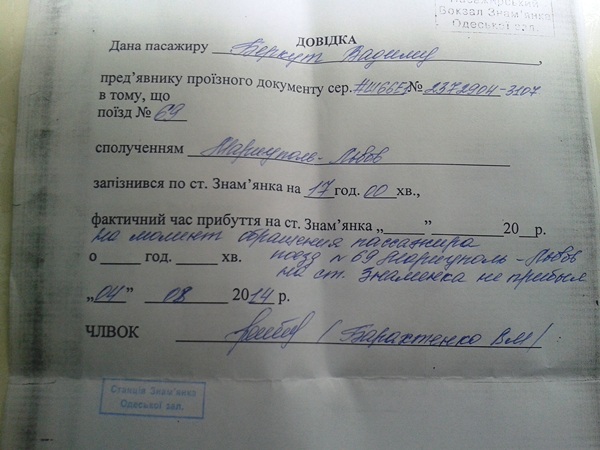 Пасажирський
Вокзал Знам'янка
Одеської зал.
ДОВІДКА
Дана пасажиру Беркут Вадиму,
пред'явнику проїзного документу сер. № 2372904-3107
в тому, що
поїзд № 69
сполученням Мариуполь-Львов
запізнився по ст. Знам'янка на 17 год. 00 хв.,
фактичний час прибуття на ст. Знам'янка „ " 20 р.
На момент обращения пассажира
о год. хв. поезд N 69 Мариуполь-Львов
на ст. Знаменка не прибыл
„04" 08 2014 р.
ЧЛВОК (Барахтенко ВМ)
Станція Знам'янка
Одеської зал.